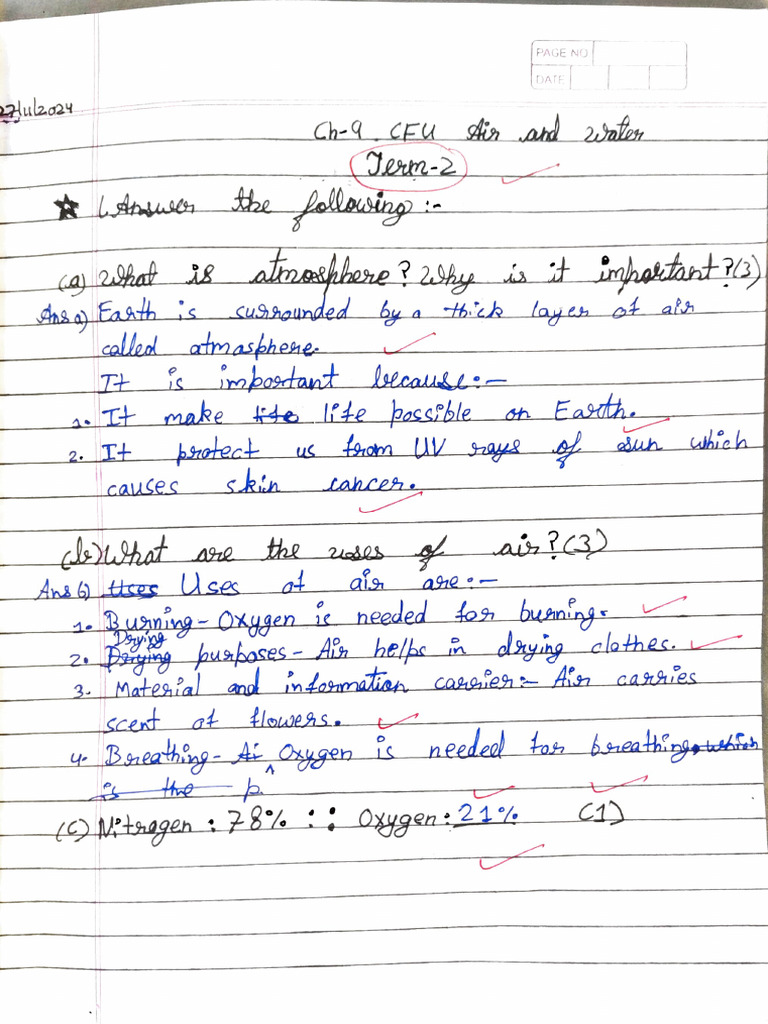 PAGE NO
DATE
27/11/2024
Ch-9 CFU Air and Water
Term-2
1. Answer the following :-
(a) What is atmosphere? Why is it important? (3)
Ans a) Earth is surrounded by a thick layer of air
called atmosphere.
It is important because :-
1. It make life life possible on Earth.
2. It protect us from UV rays of sun which
causes skin cancer.
(b) What are the uses of air? (3)
Ans b) Uses Uses of air are :-
1. Burning - Oxygen is needed for burning.
Drying
2. Drying purposes - Air helps in drying clothes.
3. Material and information carrier :- Air carries
scent of flowers.
4. Breathing - Air Oxygen is needed for breathing. which
is the p.
(c) Nitrogen : 78% :: Oxygen : 21% (1)